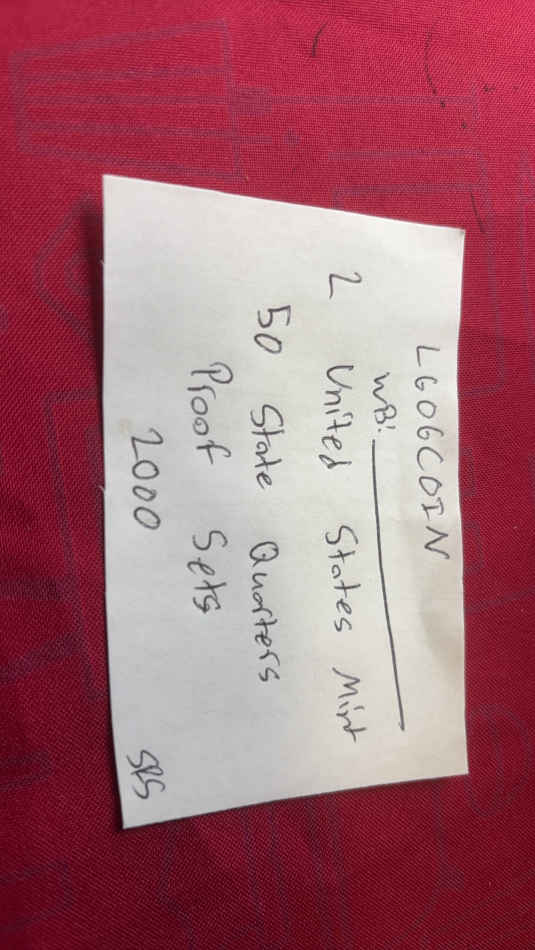 LGOGCOIN
WB:
2 United States Mint
50 State Quarters
Proof Sets
2000